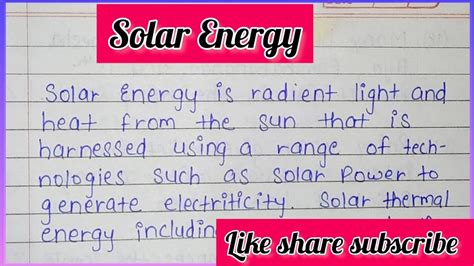 Solar Energy
Solar Energy is radient light and
heat from the sun that is
harnessed using a range of tech-
nologies such as solar Power to
generate electriticity. Solar thermal
energy including
Like share subscribe